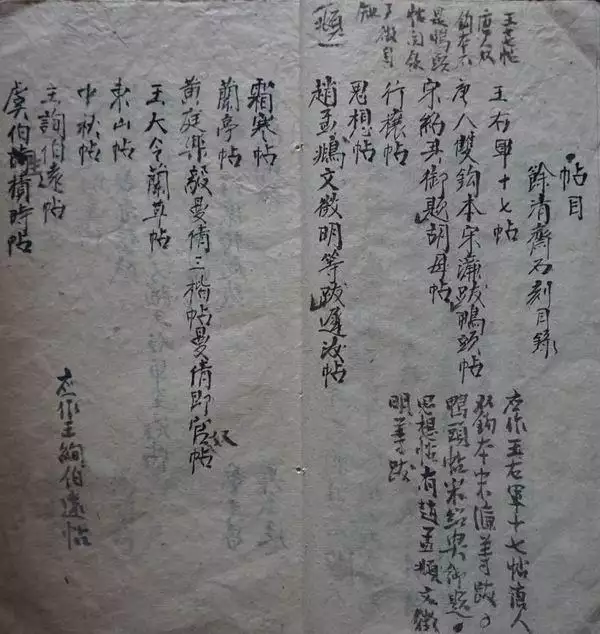 帖目
餘清齋石刻目錄
王右軍十七帖
唐人雙鈎本宋濂跋鴨頭帖
宋約其御題胡母帖
行穰帖
思想帖
趙孟頫文徵明等跋遲汝帖
唐人双
鈎本
是鴨頭
应作王右軍十七帖唐人
双鈎本宋濂等跋。
鴨頭帖宋紹興御題。
思想帖有趙孟頫文徵
明等跋
霜寒帖
蘭亭帖
黄庭樂毅曼倩三楷帖曼倩即官帖
奴
王大令蘭草帖
東山帖
中秋帖
王詢伯遠帖
虞伯施積時帖
应作王絢伯遠帖